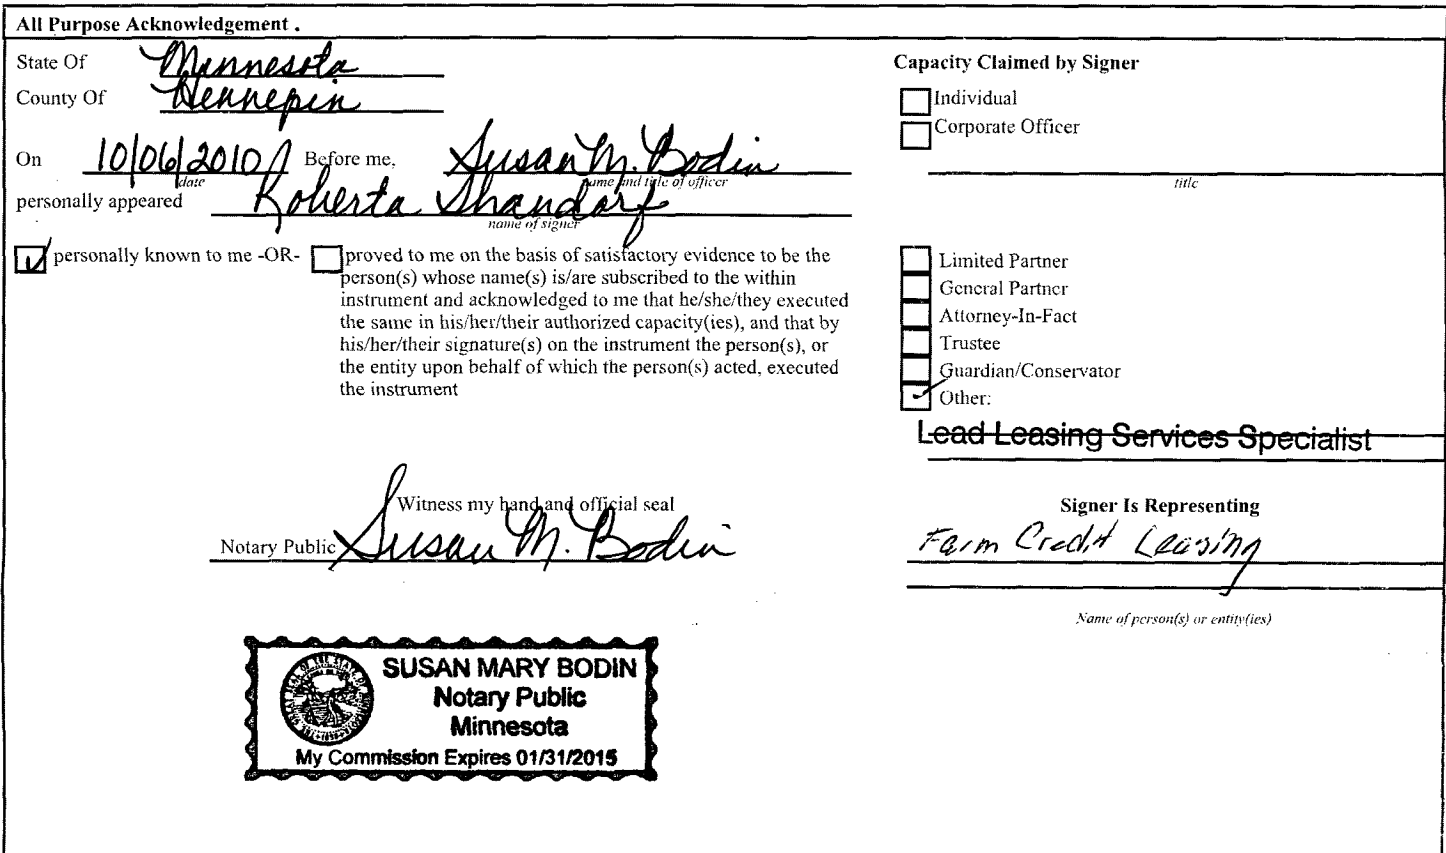 All Purpose Acknowledgement .
State Of Minnesota
County Of Hennepin
On 10/06/2010 Before me, Susan M. Bodin
date
name and title of officer
personally appeared Roberta Shandorf
name of signer
personally known to me -OR- proved to me on the basis of satisfactory evidence to be the
person(s) whose name(s) is/are subscribed to the within
instrument and acknowledged to me that he/she/they executed
the same in his/her/their authorized capacity(ies), and that by
his/her/their signature(s) on the instrument the person(s), or
the entity upon behalf of which the person(s) acted, executed
the instrument
Witness my hand and official seal
Notary Public Susan M. Bodin
SUSAN MARY BODIN
Notary Public
Minnesota
My Commission Expires 01/31/2015
Capacity Claimed by Signer
Individual
Corporate Officer
title
Limited Partner
General Partner
Attorney-In-Fact
Trustee
Guardian/Conservator
Other:
Lead Leasing Services Specialist
Signer Is Representing
Farm Credit Leasing
Name of person(s) or entity(ies)